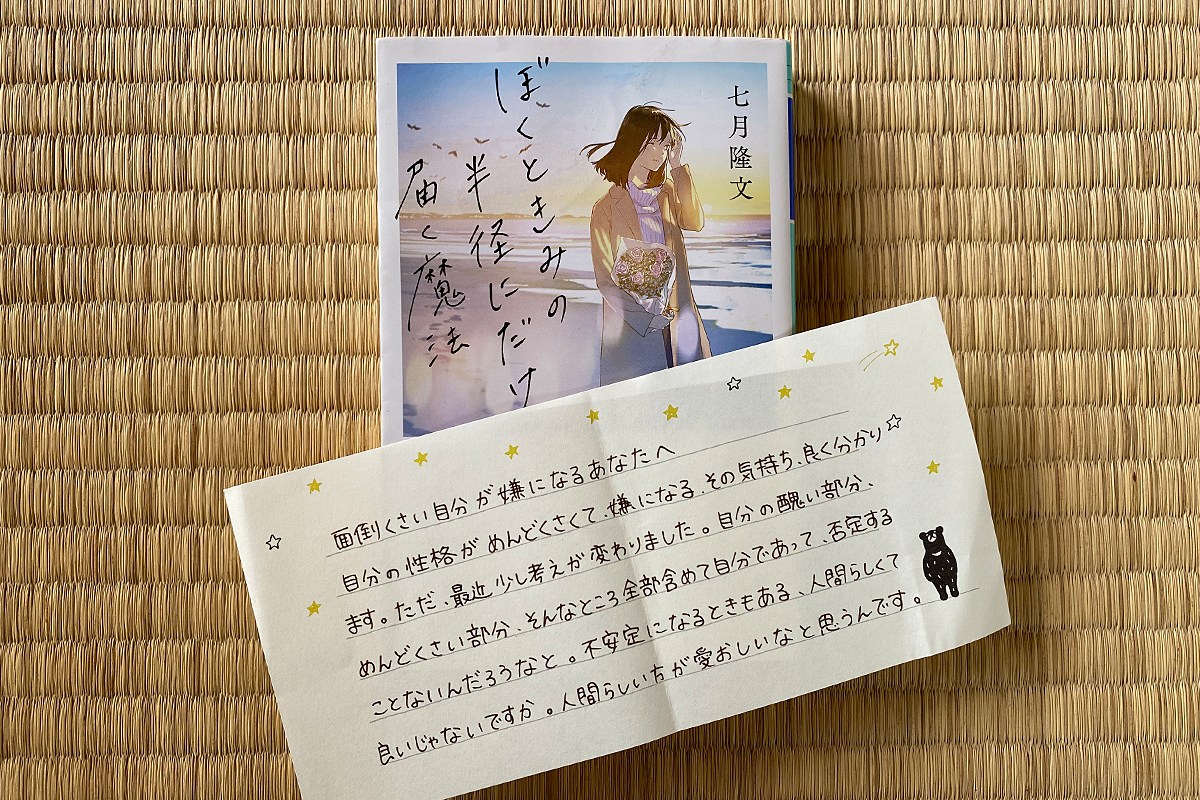 ぼくときみの
半径にだけ
届く魔法
七月隆文
面倒くさい自分が嫌になるあなたへ
自分の性格がめんどくさくて、嫌になる、その気持ち、良く分かり
ます。ただ、最近少し考えが変わりました。自分の醜い部分、
めんどくさい部分、そんなところ全部含めて自分であって、否定する
ことないんだろうなと。不安定になるときもある、人間らしくて
良いじゃないですか。人間らしい方が愛おしいなと思うんです。